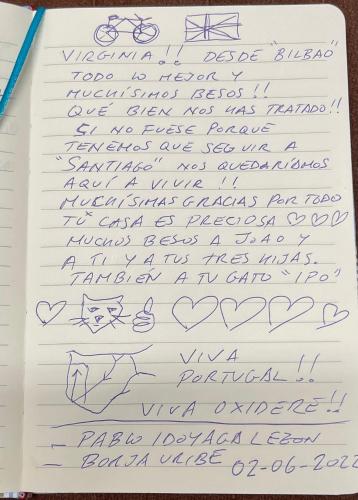 VIRGINIA!! DESDE "BILBAO"
TODO LO MEJOR Y
MUCHÍSIMOS BESOS!!
QUÉ BIEN NOS HAS TRATADO!!
SI NO FUESE PORQUE
TENEMOS QUE SEGUIR A
"SANTIAGO" NOS QUEDARÍAMOS
AQUÍ A VIVIR!!
MUCHÍSIMAS GRACIAS POR TODO
TU CASA ES PRECIOSA
MUCHOS BESOS A JOAO Y
A TI Y A TUS TRES HIJAS.
TAMBIÉN A TU GATO "IPO"
VIVA
PORTUGAL!!
VIVA OXIDERE!!
- PABLO IDOYAGA LEZON
- BORJA URIBE 02-06-2022